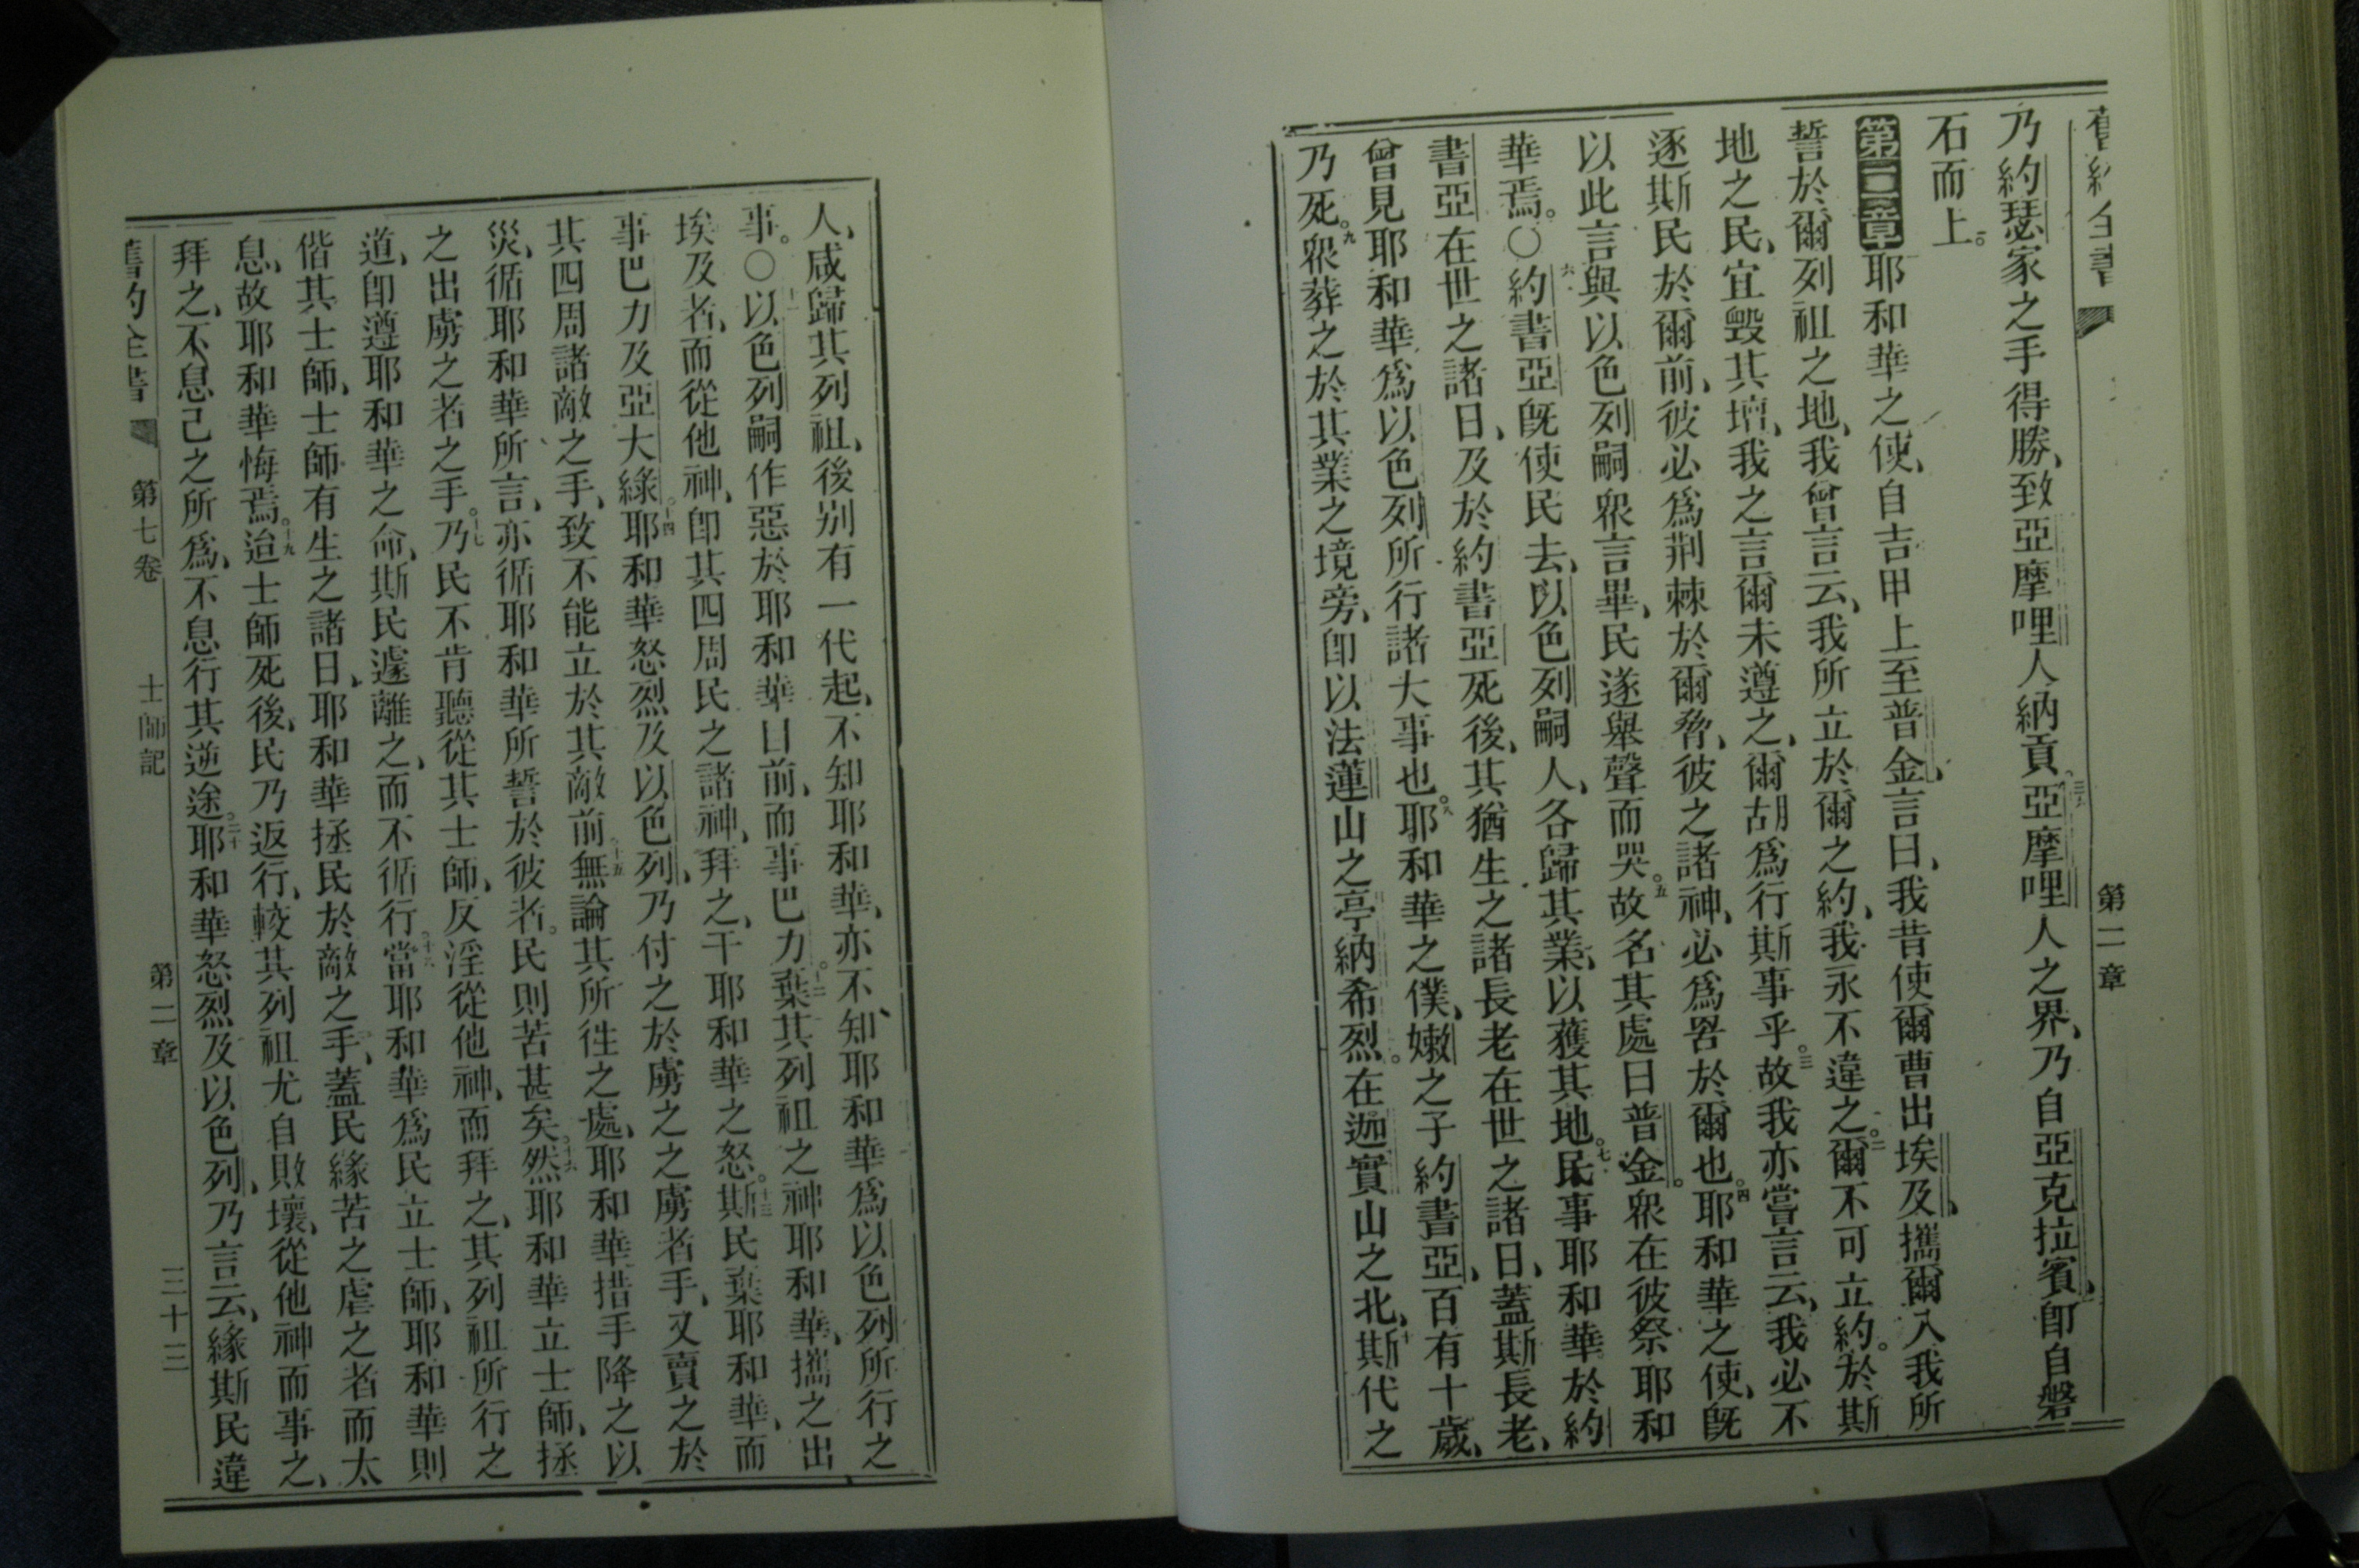 舊約全書 第二章
乃約瑟家之手得勝、致亞摩哩人納貢。三六亞摩哩人之界、乃自亞克拉賓、卽自磐
石而上。
第二章 耶和華之使、自吉甲上至普金、言曰、我昔使爾曹出埃及、攜爾入我所
誓於爾列祖之地、我曾言云、我所立於爾之約、我永不違之。二爾不可立約。於斯
地之民、宜毀其壇、我之言爾未遵之、爾胡爲行斯事乎。三故我亦嘗言云、我必不
逐斯民於爾前、彼必爲荆棘於爾脅、彼之諸神、必爲罟於爾也。四耶和華之使、旣
以此言與以色列嗣眾言畢、民遂舉聲而哭。五故名其處曰普金。眾在彼祭耶和
華焉。○六約書亞旣使民去、以色列嗣人、各歸其業、以獲其地。七民事耶和華於約
書亞在世之諸日、及於約書亞死後、其猶生之諸長老在世之諸日、蓋斯長老、
曾見耶和華爲以色列所行諸大事也。八耶和華之僕、嫩之子約書亞、百有十歲、
乃死。九眾葬之於其業之境旁、卽以法蓮山之亭納希烈。在迦實山之北、十斯代之
人、咸歸其列祖、後别有一代起、不知耶和華、亦不知耶和華爲以色列所行之
事。○十一以色列嗣作惡於耶和華目前、而事巴力。十二棄其列祖之神耶和華、攜之出
埃及者、而從他神、卽其四周民之諸神、拜之、干耶和華之怒。十三斯民棄耶和華、而
事巴力及亞大綠。十四耶和華怒烈及以色列、乃付之於虜之之虜者手、又賣之於
其四周諸敵之手、致不能立於其敵前。十五無論其所徃之處、耶和華措手降之以
災、循耶和華所言、亦循耶和華所誓於彼者。民則苦甚矣。十六然耶和華立士師、拯
之出虜之者之手。十七乃民不肯聽從其士師、反淫從他神、而拜之、其列祖所行之
道、卽遵耶和華之命、斯民遽離之、而不循行。十八當耶和華爲民立士師、耶和華則
偕其士師、士師有生之諸日、耶和華拯民於敵之手、蓋民緣苦之虐之者而太
息、故耶和華悔焉。十九迨士師死後、民乃返行、較其列祖尤自敗壞、從他神而事之、
拜之、不息己之所爲、不息行其逆途。二十耶和華怒烈及以色列、乃言云、緣斯民違
舊約全書 第七卷 士師記 第二章 三十三